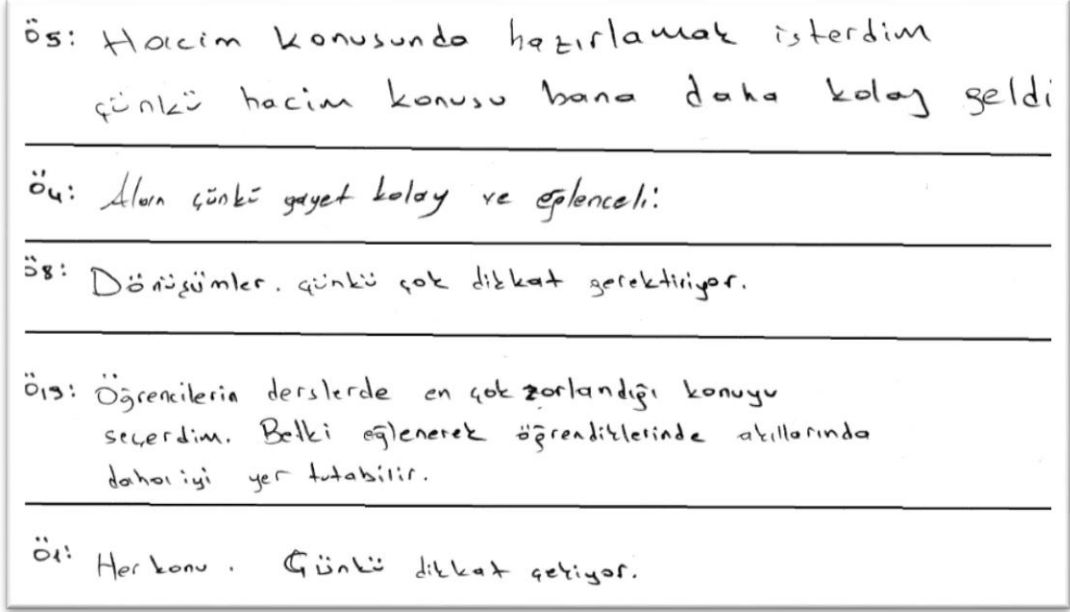 Ö5: Hacim konusunda hazırlamak isterdim
çünkü hacim konusu bana daha kolay geldi
Ö4: Alan çünkü gayet kolay ve eğlenceli:
Ö8: Dönüşümler. çünkü çok dikkat gerektiriyor.
Ö19: Öğrencilerin derslerde en çok zorlandığı konuyu
seçerdim. Belki eğlenerek öğrendiklerinde akıllarında
daha iyi yer tutabilir.
Ö1: Her konu. Çünkü dikkat çekiyor.